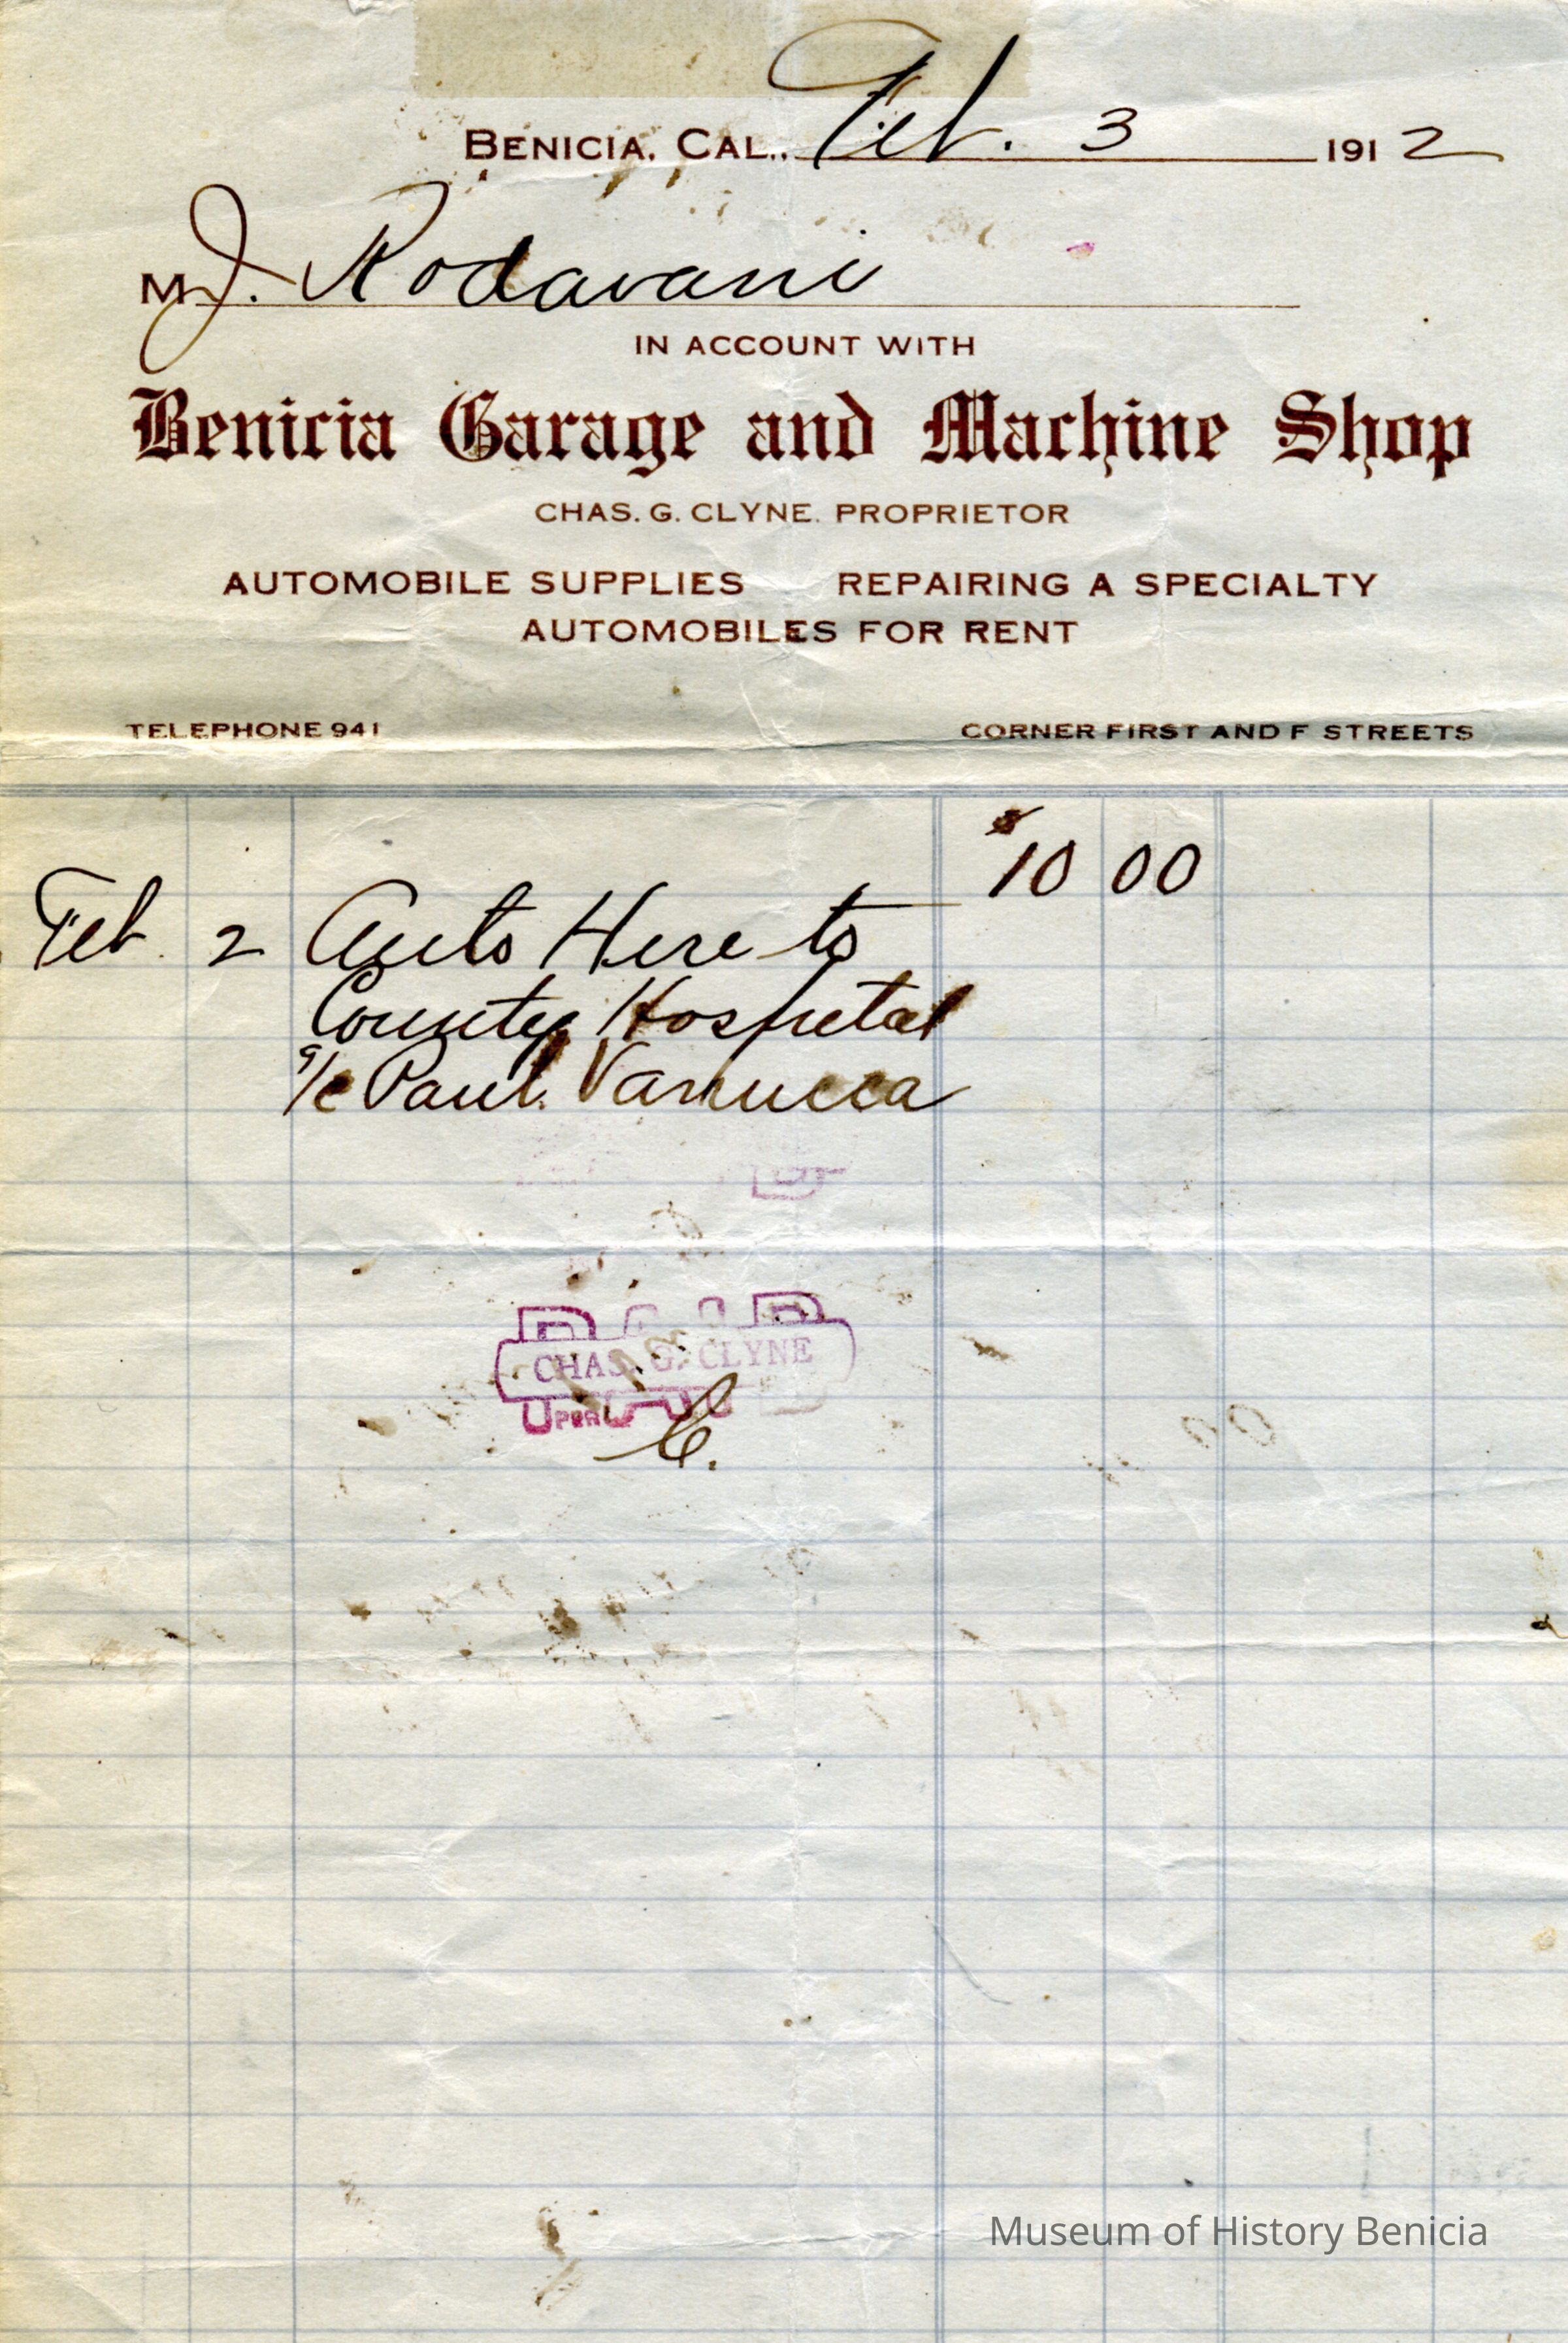 BENICIA, CAL., Feb. 3 1912
M J. Rodavani
IN ACCOUNT WITH
Benicia Garage and Machine Shop
CHAS. G. CLYNE. PROPRIETOR
AUTOMOBILE SUPPLIES REPAIRING A SPECIALTY
AUTOMOBILES FOR RENT
TELEPHONE 941 CORNER FIRST AND F STREETS
$10 00
Feb. 2 Auto Here to
County Hospital
a/c Paul Vanucca
CHAS. G. CLYNE
PER C.
Museum of History Benicia